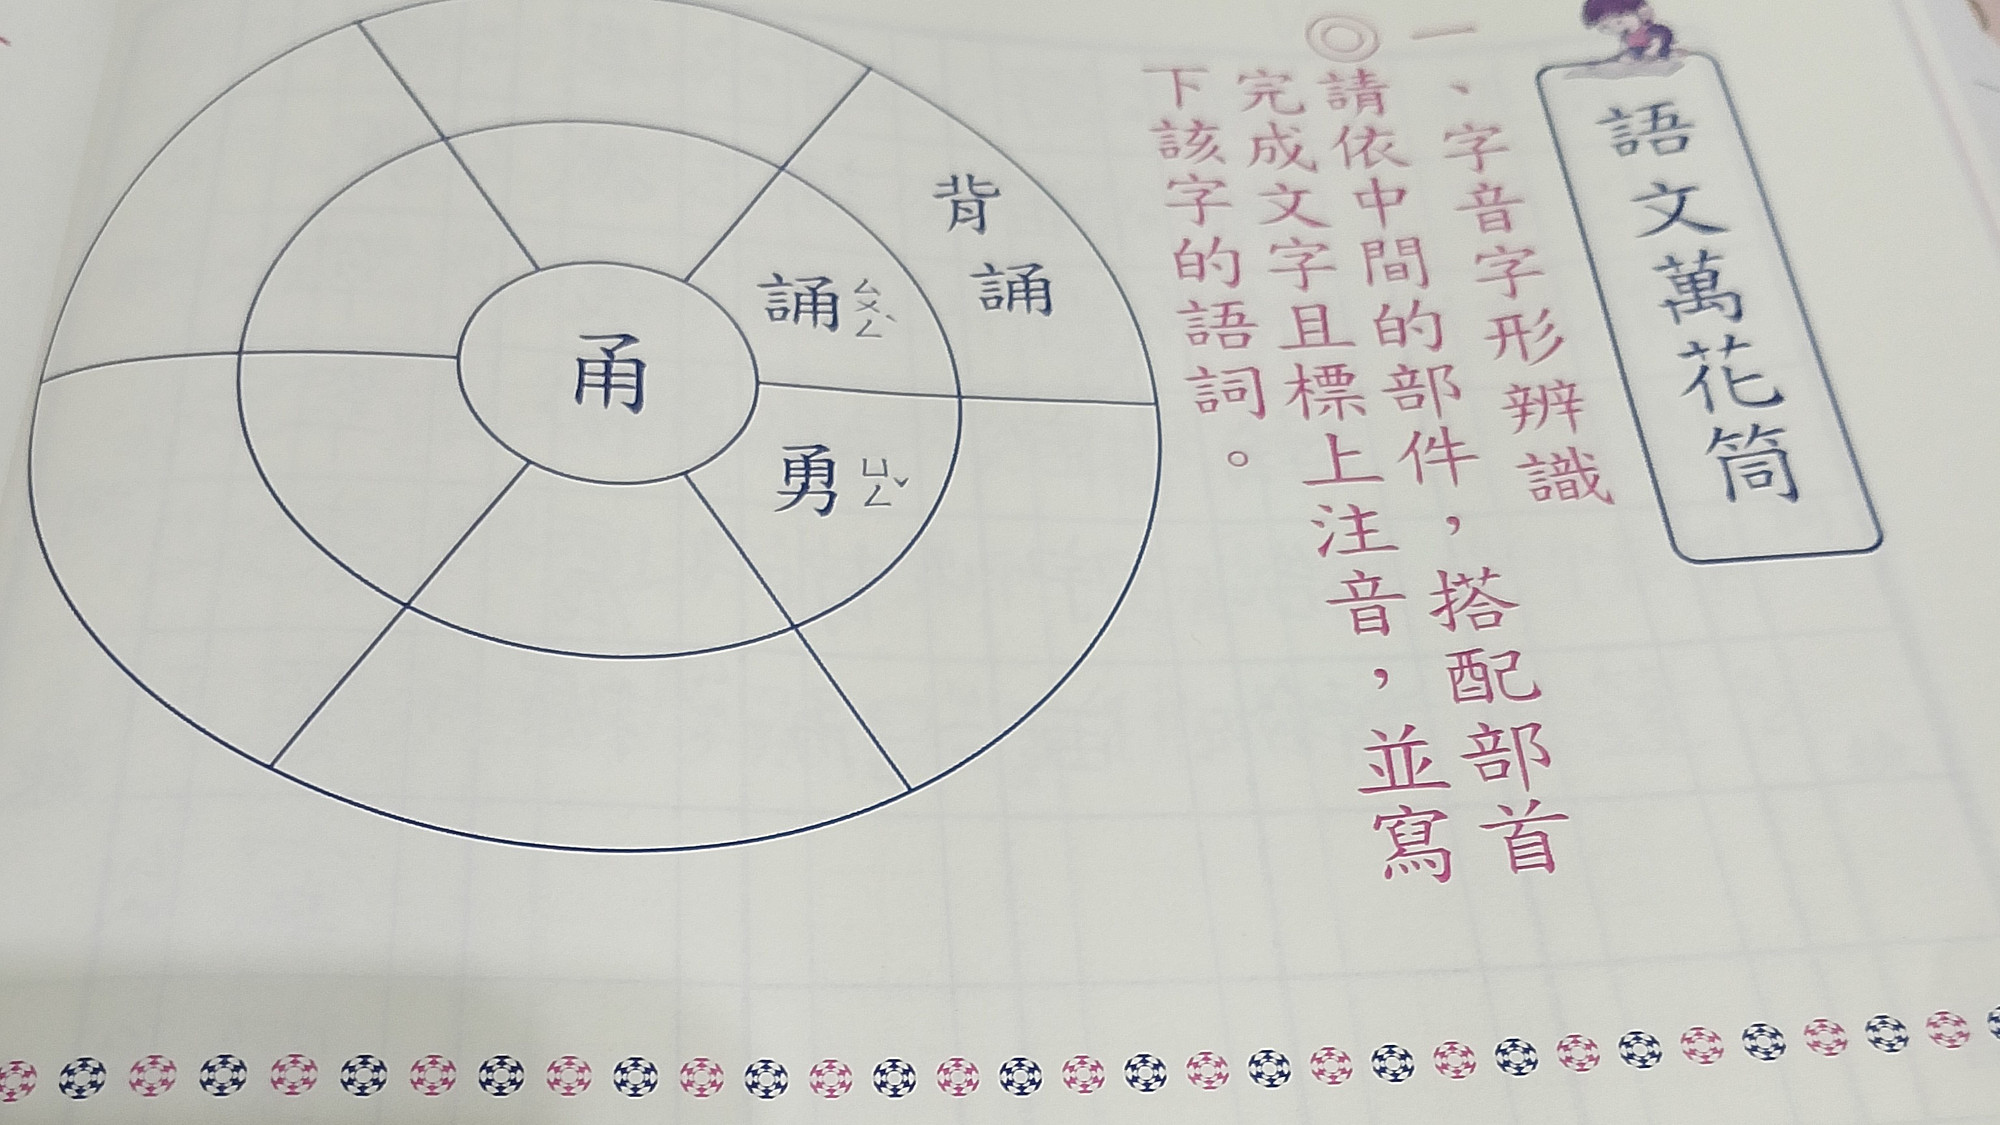 語文萬花筒
一、字音字形辨識
◎請依中間的部件，搭配部首
完成文字且標上注音，並寫
下該字的語詞。
背誦
誦ㄙㄨㄥˋ
勇ㄩㄥˇ
甬